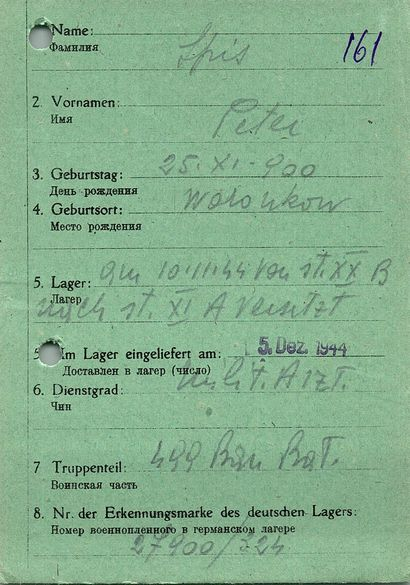 Name: Spis 161
Фамилия
2. Vornamen: Peter
Имя
3. Geburtstag: 25. XI. 900
День рождения
4. Geburtsort: Woronkow
Место рождения
5. Lager: am 10.11.44 von st. XX B
Лагер nach st. XI A versetzt
Im Lager eingeliefert am: 5. Dez. 1944
Доставлен в лагер (число)
6. Dienstgrad: milit. Arzt.
Чин
7 Truppenteil: 499 Bau Bat.
Воинская часть
8. Nr. der Erkennungsmarke des deutschen Lagers:
Номер военнопленного в германском лагере
27900/324